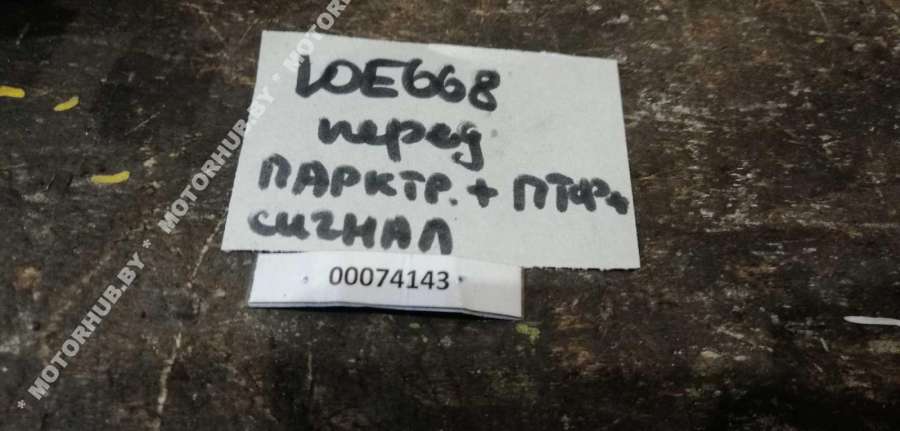 LOE668
перед
ПАРКТР. + ПТФ +
СИГНАЛ
00074143
* MOTORHUB.BY * MOTORHUB.BY * MOTORHUB.BY